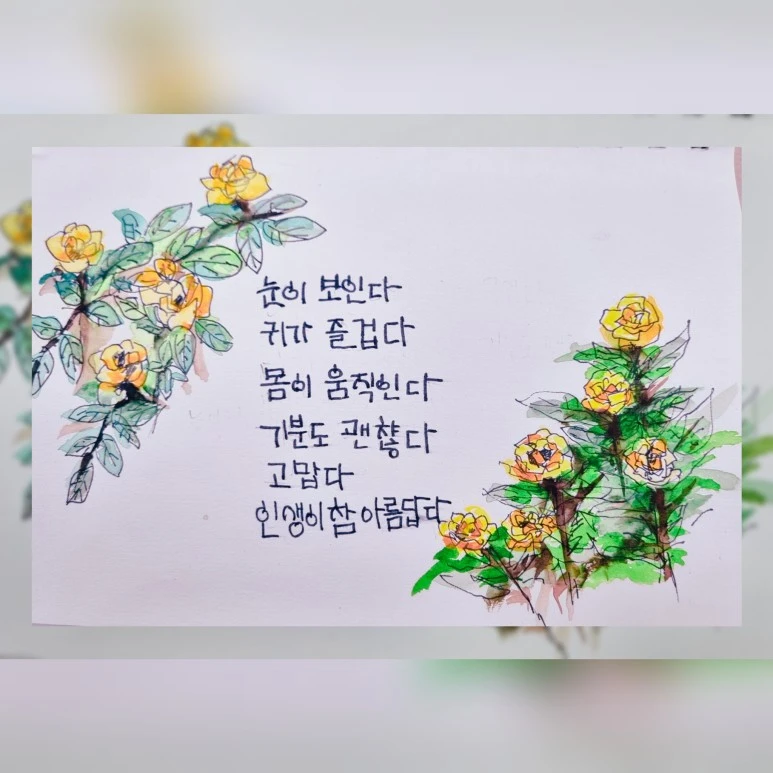 눈이 보인다
귀가 즐겁다
몸이 움직인다
기분도 괜찮다
고맙다
인생이 참 아름답다